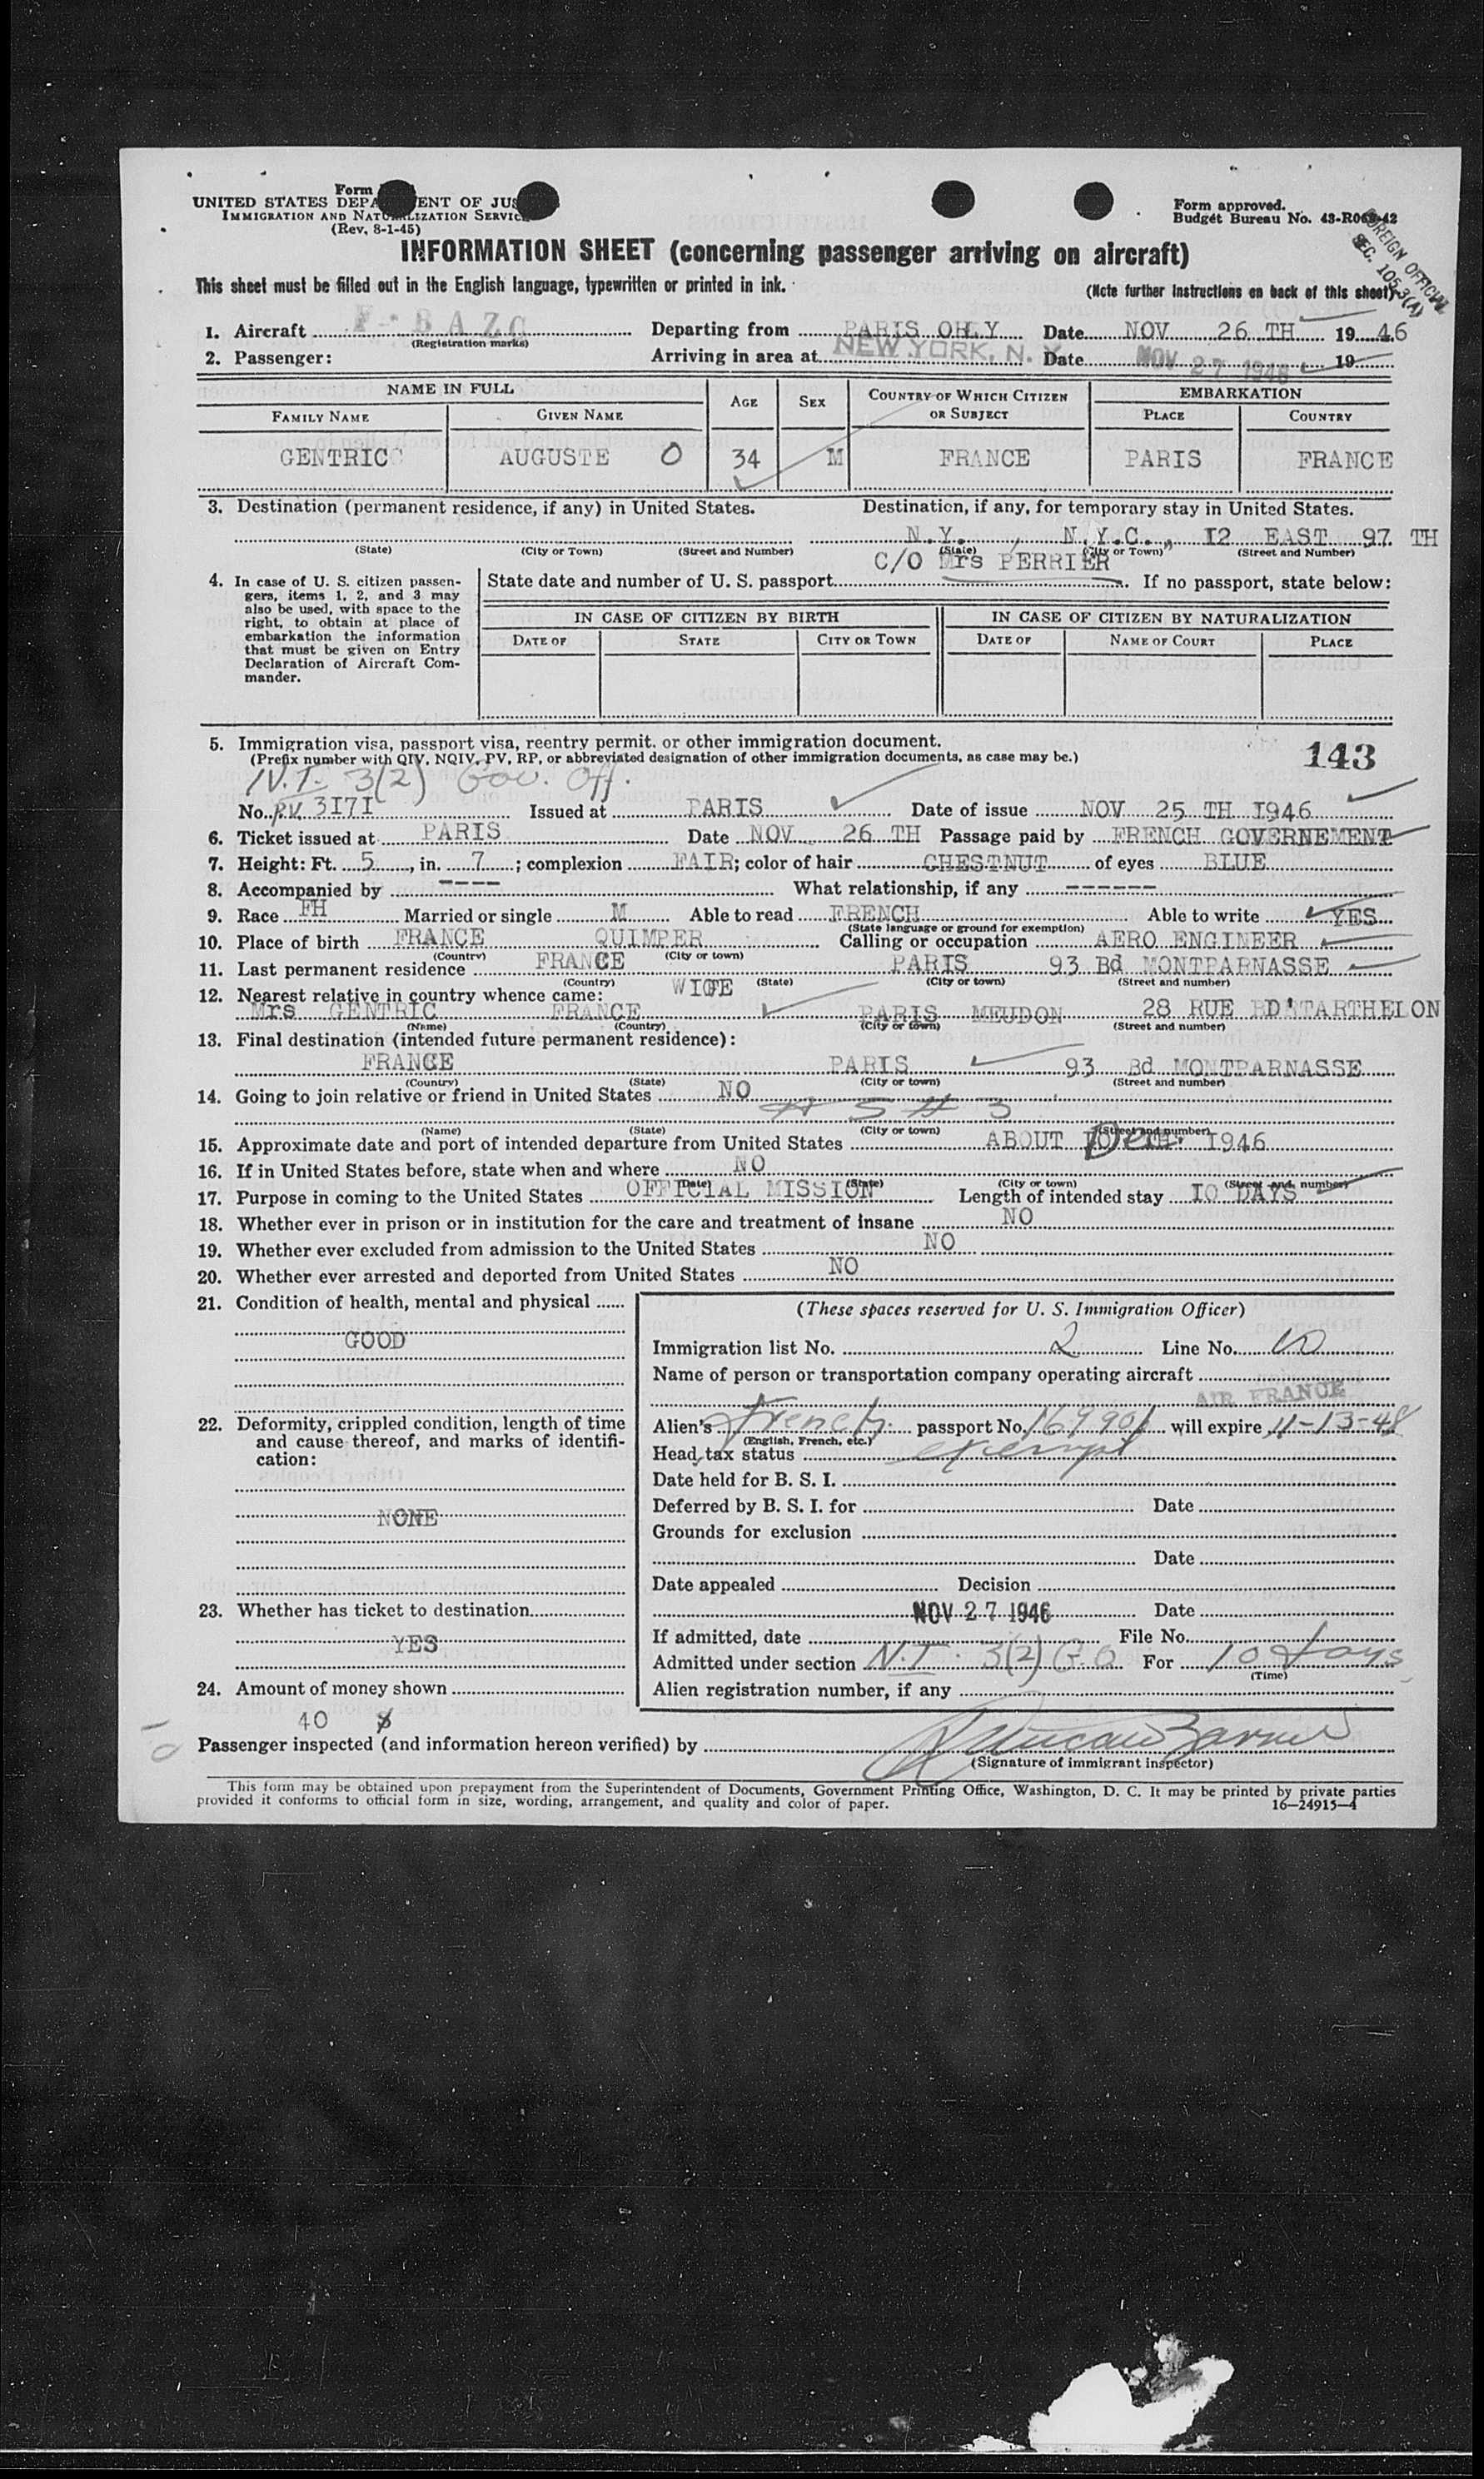 Form
UNITED STATES DEPA ENT OF JUS
IMMIGRATION AND NATURALIZATION SERVICE
(Rev. 8-1-45)
Form approved.
Budget Bureau No. 43-R068-42
FOREIGN OFFICIAL
SEC. 105.3(A)
INFORMATION SHEET (concerning passenger arriving on aircraft)
This sheet must be filled out in the English language, typewritten or printed in ink.
(Note further instructions on back of this sheet)
1. Aircraft F-BAZC Departing from PARIS ORLY Date NOV 26 TH 1946
(Registration marks)
2. Passenger: Arriving in area at NEW YORK, N. Y. Date NOV 27 1946 19
NAME IN FULL AGE SEX COUNTRY OF WHICH CITIZEN OR SUBJECT EMBARKATION
FAMILY NAME GIVEN NAME PLACE COUNTRY
GENTRIC AUGUSTE O 34 M FRANCE PARIS FRANCE
3. Destination (permanent residence, if any) in United States. Destination, if any, for temporary stay in United States.
N.Y. , N.Y.C. , I2 EAST 97 TH
(State) (City or Town) (Street and Number) (State) (City or Town) (Street and Number)
C/O Mrs PERRIER
4. In case of U. S. citizen passengers, items 1, 2, and 3 may also be used, with space to the right, to obtain at place of embarkation the information that must be given on Entry Declaration of Aircraft Commander.
State date and number of U. S. passport If no passport, state below:
IN CASE OF CITIZEN BY BIRTH IN CASE OF CITIZEN BY NATURALIZATION
DATE OF STATE CITY OR TOWN DATE OF NAME OF COURT PLACE
5. Immigration visa, passport visa, reentry permit, or other immigration document.
(Prefix number with QIV, NQIV, PV, RP, or abbreviated designation of other immigration documents, as case may be.)
143
N.I. 3(2) Gov. Off.
No. P.V. 3I7I Issued at PARIS Date of issue NOV 25 TH I946
6. Ticket issued at PARIS Date NOV 26 TH Passage paid by FRENCH GOVERNEMENT
7. Height: Ft. 5, in. 7; complexion FAIR; color of hair CHESTNUT of eyes BLUE
8. Accompanied by ---- What relationship, if any ------
9. Race FH Married or single M Able to read FRENCH Able to write YES
(State language or ground for exemption)
10. Place of birth FRANCE QUIMPER Calling or occupation AERO ENGINEER
(Country) (City or town)
11. Last permanent residence FRANCE PARIS 93 Bd MONTPARNASSE
(Country) (State) (City or town) (Street and number)
12. Nearest relative in country whence came: WIFE
Mrs GENTRIC FRANCE PARIS MEUDON 28 RUE
(Name) (Country) (City or town) (Street and number)
13. Final destination (intended future permanent residence):
FRANCE PARIS 93 Bd MONTPARNASSE
(Country) (State) (City or town) (Street and number)
14. Going to join relative or friend in United States NO
(Name) (State) (City or town) (Street and number)
15. Approximate date and port of intended departure from United States ABOUT Dec. I946
16. If in United States before, state when and where NO
(Date) (State) (City or town) (Street and number)
17. Purpose in coming to the United States OFFICIAL MISSION Length of intended stay IO DAYS
18. Whether ever in prison or in institution for the care and treatment of insane NO
19. Whether ever excluded from admission to the United States NO
20. Whether ever arrested and deported from United States NO
21. Condition of health, mental and physical
GOOD
22. Deformity, crippled condition, length of time and cause thereof, and marks of identification:
NONE
23. Whether has ticket to destination
YES
24. Amount of money shown
40 $
(These spaces reserved for U. S. Immigration Officer)
Immigration list No. 2 Line No. 10
Name of person or transportation company operating aircraft
AIR FRANCE
Alien's French passport No. will expire 11-13-48
(English, French, etc.)
Head tax status exempt
Date held for B. S. I.
Deferred by B. S. I. for Date
Grounds for exclusion
Date
Date appealed Decision
NOV 27 1946 Date
If admitted, date File No.
Admitted under section N.I. 3(2) G.O For 10 days
(Time)
Alien registration number, if any
Passenger inspected (and information hereon verified) by
(Signature of immigrant inspector)
This form may be obtained upon prepayment from the Superintendent of Documents, Government Printing Office, Washington, D. C. It may be printed by private parties
provided it conforms to official form in size, wording, arrangement, and quality and color of paper.
16—24915-4